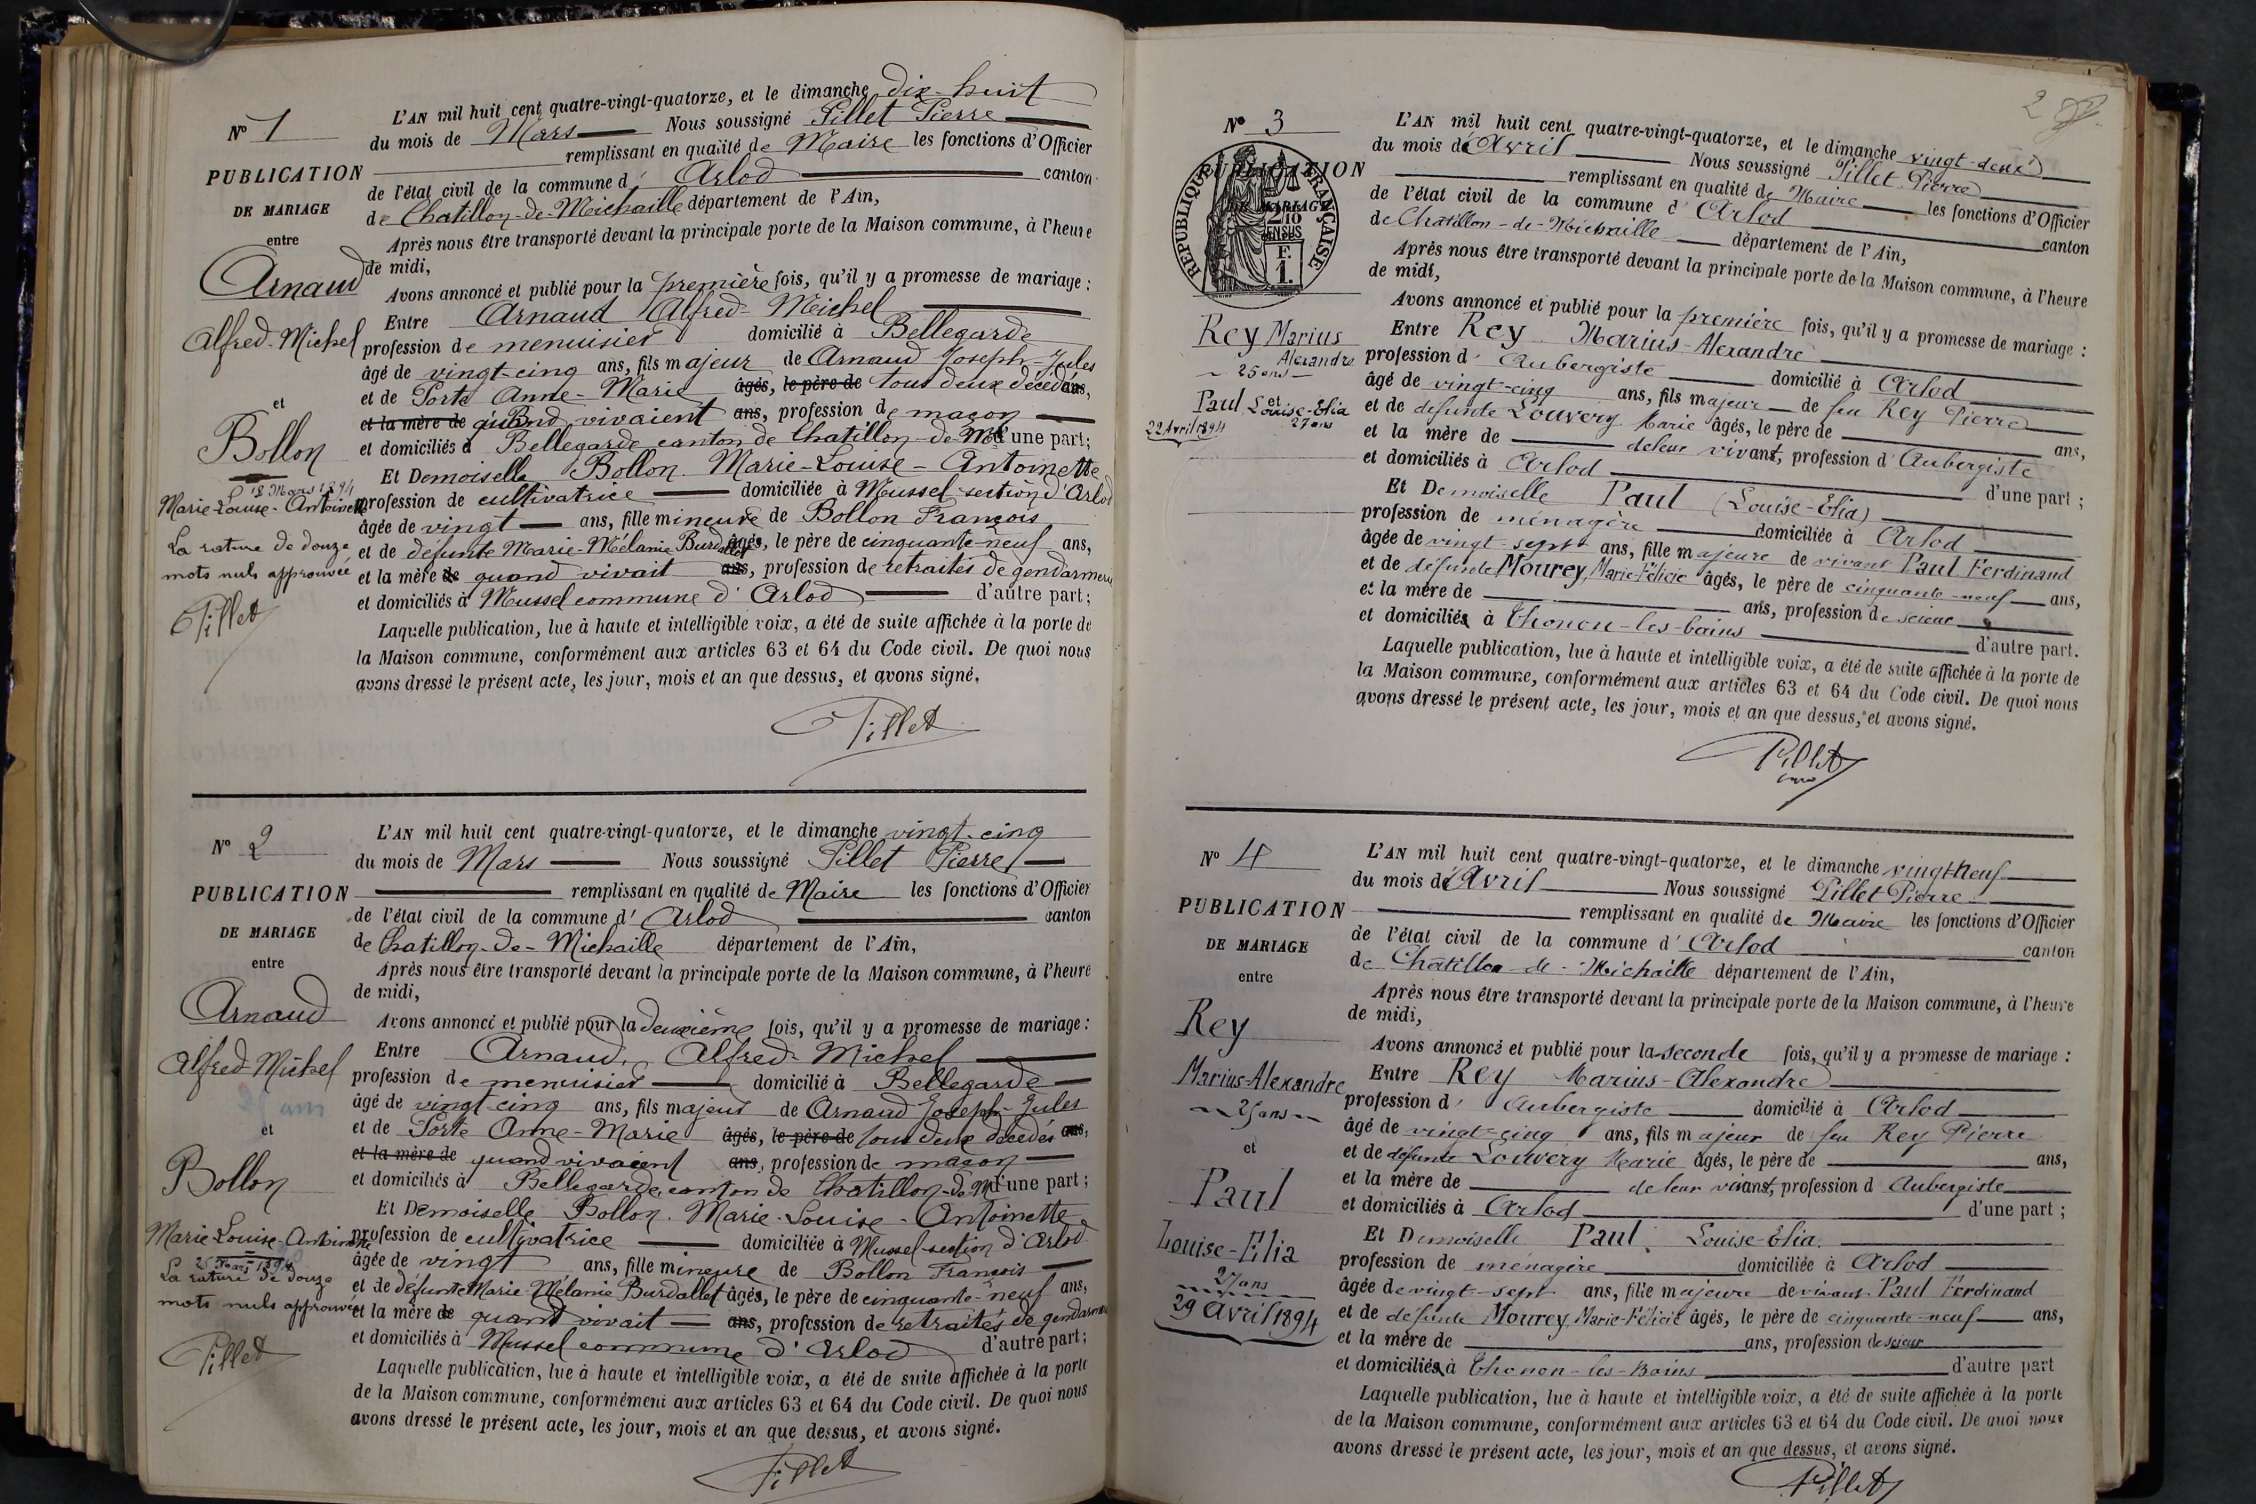 N° 1
PUBLICATION
DE MARIAGE
entre
Arnaud
Alfred-Michel
et
Bollon
18 Mars 1894
Marie-Louise-Antoinette
La rature de douze
mots nuls approuvée
Pillet
L'AN mil huit cent quatre-vingt-quatorze, et le dimanche dix-huit
du mois de Mars Nous soussigné Pillet Pierre
remplissant en qualité de Maire les fonctions d'Officier
de l'état civil de la commune d' Arlod canton
de Chatillon-de-Michaille département de l'Ain,
Après nous être transporté devant la principale porte de la Maison commune, à l'heure
de midi,
Avons annoncé et publié pour la première fois, qu'il y a promesse de mariage :
Entre Arnaud Alfred-Michel
profession de menuisier domicilié à Bellegarde
âgé de vingt-cinq ans, fils majeur de Arnaud Joseph-Jules
et de Porte Anne-Marie âgés, le père de tous deux décédés ans,
et la mère de quand vivaient ans, profession de maçon
et domiciliés à Bellegarde canton de Chatillon-de-M d'une part;
Et Demoiselle Bollon Marie-Louise-Antoinette
profession de cultivatrice domiciliée à Mussel-section d'Arlod
âgée de vingt ans, fille mineure de Bollon François
et de défunte Marie-Mélanie Burdallet âgés, le père de cinquante-neuf ans,
et la mère de quand vivait ans, profession de retraités de gendarmerie
et domiciliés à Mussel commune d'Arlod d'autre part;
Laquelle publication, lue à haute et intelligible voix, a été de suite affichée à la porte de
la Maison commune, conformément aux articles 63 et 64 du Code civil. De quoi nous
avons dressé le présent acte, les jour, mois et an que dessus, et avons signé.
Pillet
N° 2
PUBLICATION
DE MARIAGE
entre
Arnaud
Alfred Michel
25 ans
et
Bollon
Marie Louise-Antoinette
25 Mars 1894
La rature de douze
mots nuls approuvée
Pillet
L'AN mil huit cent quatre-vingt-quatorze, et le dimanche vingt-cinq
du mois de Mars Nous soussigné Pillet Pierre
remplissant en qualité de Maire les fonctions d'Officier
de l'état civil de la commune d' Arlod canton
de Chatillon-de-Michaille département de l'Ain,
Après nous être transporté devant la principale porte de la Maison commune, à l'heure
de midi,
Avons annoncé et publié pour la deuxième fois, qu'il y a promesse de mariage :
Entre Arnaud, Alfred-Michel
profession de menuisier domicilié à Bellegarde
âgé de vingt-cinq ans, fils majeur de Arnaud Joseph-Jules
et de Porte Anne-Marie âgés, le père de tous deux décédés ans,
et la mère de quand vivaient ans, profession de maçon
et domiciliés à Bellegarde, canton de Chatillon-de-M d'une part;
Et Demoiselle Bollon Marie-Louise-Antoinette
profession de cultivatrice domiciliée à Mussel-section d'Arlod
âgée de vingt ans, fille mineure de Bollon François
et de défunte Marie-Mélanie Burdallet âgés, le père de cinquante-neuf ans,
et la mère de quand vivait ans, profession de retraités de gendarmerie
et domiciliés à Mussel commune d'Arlod d'autre part;
Laquelle publication, lue à haute et intelligible voix, a été de suite affichée à la porte
de la Maison commune, conformément aux articles 63 et 64 du Code civil. De quoi nous
avons dressé le présent acte, les jour, mois et an que dessus, et avons signé.
Pillet
2
N° 3
PUBLICATION
DE MARIAGE
RÉPUBLIQUE FRANÇAISE
2/10
EN SUS
F.
1.
Rey Marius
Alexandre
25 ans
et
Paul Louise-Elia
27 ans
22 Avril 1894
L'AN mil huit cent quatre-vingt-quatorze, et le dimanche vingt-deux
du mois d'Avril Nous soussigné Pillet Pierre
remplissant en qualité de Maire les fonctions d'Officier
de l'état civil de la commune d' Arlod canton
de Chatillon-de-Michaille département de l'Ain,
Après nous être transporté devant la principale porte de la Maison commune, à l'heure
de midi,
Avons annoncé et publié pour la première fois, qu'il y a promesse de mariage :
Entre Rey Marius-Alexandre
profession d' Aubergiste domicilié à Arlod
âgé de vingt-cinq ans, fils majeur de feu Rey Pierre
et de defunte Louvery Marie âgés, le père de ans,
et la mère de de leur vivant, profession d' Aubergiste
et domiciliés à Arlod d'une part;
Et Demoiselle Paul (Louise-Elia)
profession de ménagère domiciliée à Arlod
âgée de vingt-sept ans, fille majeure de vivant Paul Ferdinand
et de defunte Mourey, Marie-Félicie âgés, le père de cinquante-neuf ans,
et la mère de ans, profession de scieur
et domiciliés à Thonon-les-bains d'autre part.
Laquelle publication, lue à haute et intelligible voix, a été de suite affichée à la porte de
la Maison commune, conformément aux articles 63 et 64 du Code civil. De quoi nous
avons dressé le présent acte, les jour, mois et an que dessus, et avons signé.
Pillet
N° 4
PUBLICATION
DE MARIAGE
entre
Rey
Marius-Alexandre
25 ans
et
Paul
Louise-Elia
27 ans
29 Avril 1894
L'AN mil huit cent quatre-vingt-quatorze, et le dimanche vingt-neuf
du mois d'Avril Nous soussigné Pillet Pierre
remplissant en qualité de Maire les fonctions d'Officier
de l'état civil de la commune d' Arlod canton
de Châtillon-de-Michaille département de l'Ain,
Après nous être transporté devant la principale porte de la Maison commune, à l'heure
de midi,
Avons annoncé et publié pour la seconde fois, qu'il y a promesse de mariage :
Entre Rey Marius-Alexandre
profession d' Aubergiste domicilié à Arlod
âgé de vingt-cinq ans, fils majeur de feu Rey Pierre
et de defunte Louvery Marie âgés, le père de ans,
et la mère de de leur vivant, profession d Aubergiste
et domiciliés à Arlod d'une part;
Et Demoiselle Paul, Louise-Elia.
profession de ménagère domiciliée à Arlod
âgée de vingt-sept ans, fille majeure de vivant Paul Ferdinand
et de defunte Mourey, Marie-Félicie âgés, le père de cinquante-neuf ans,
et la mère de ans, profession de scieur
et domiciliés à Thonon-les-Bains d'autre part
Laquelle publication, lue à haute et intelligible voix, a été de suite affichée à la porte
de la Maison commune, conformément aux articles 63 et 64 du Code civil. De quoi nous
avons dressé le présent acte, les jour, mois et an que dessus, et avons signé.
Pillet